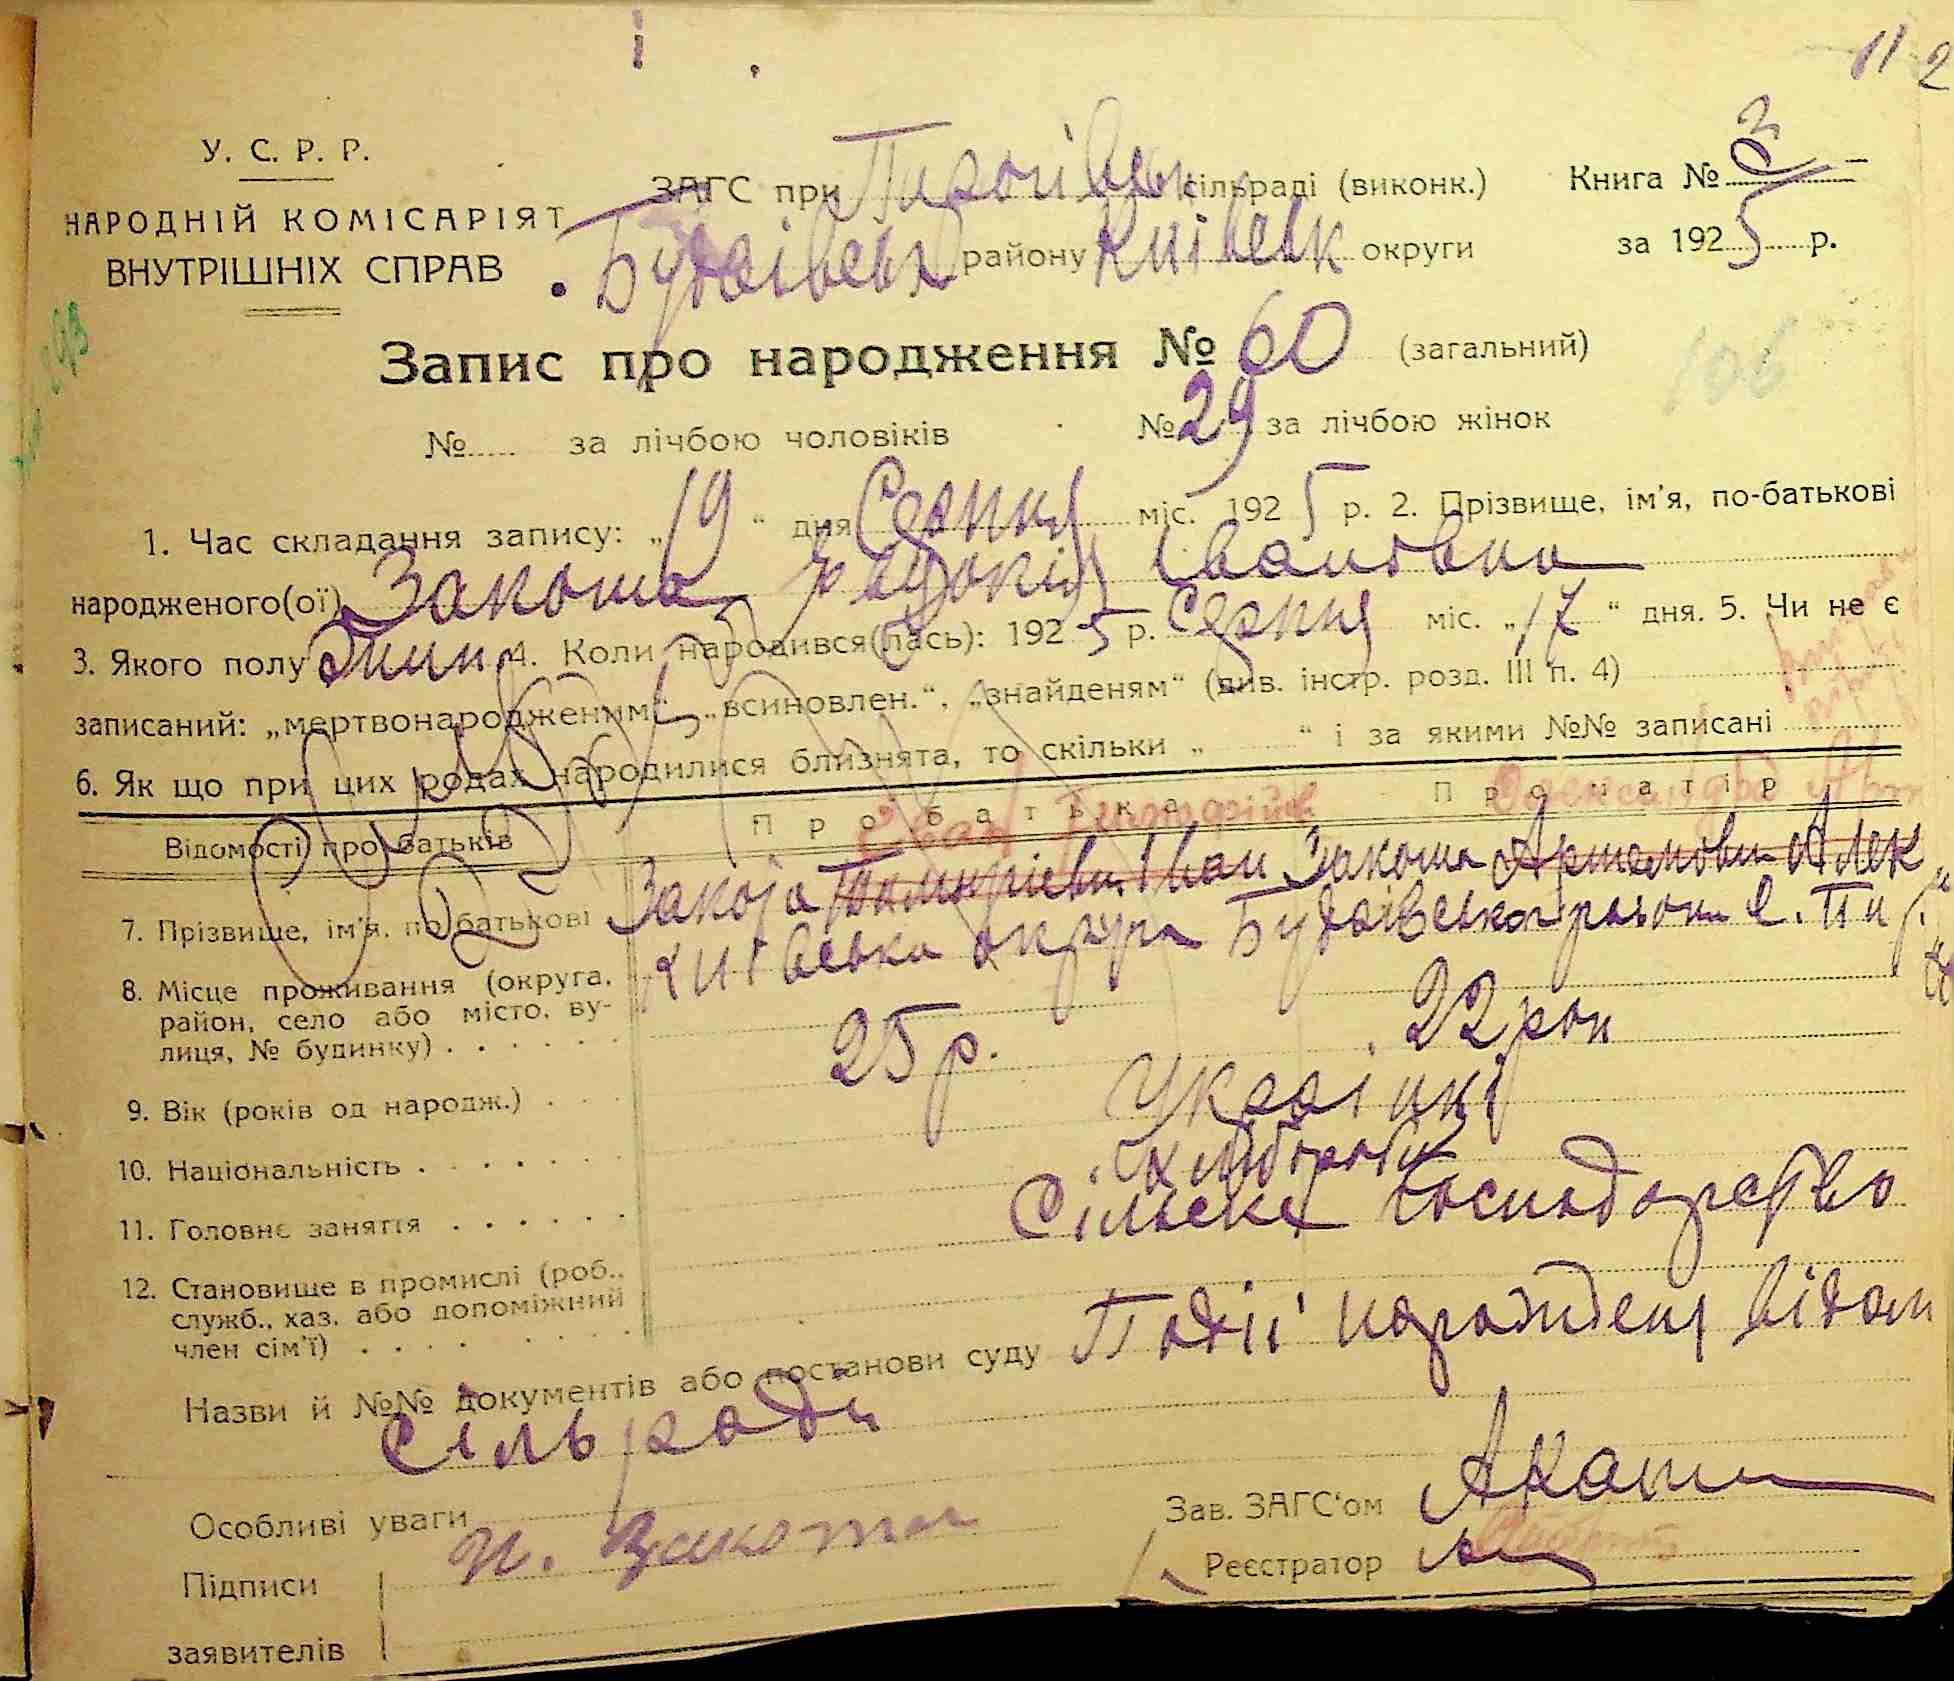 11 2
У. С. Р. Р.
НАРОДНІЙ КОМІСАРІЯТ
ВНУТРІШНІХ СПРАВ
ЗАГС при Пирогівськ сільраді (виконк.)
Книга № 3
Будаівськ району Київськ округи
за 1925 р.
Запис про народження № 60 (загальний)
106
№ за лічбою чоловіків № 29 за лічбою жінок
1. Час складання запису: „19“ дня Серпня міс. 1925 р. 2. Прізвище, ім'я, по-батькові
народженого(ої) Закота Івановна
3. Якого полу жин 4. Коли народився(лась): 1925 р. Серпня міс. „17“ дня. 5. Чи не є
записаний: „мертвонародженим“, „всиновлен.“, „знайденям“ (див. інстр. розд. III п. 4)
6. Як що при цих родах народилися близнята, то скільки „ “ і за якими №№ записані
Відомості про батьків Про батька Про матір
Іван Олександра
7. Прізвище, ім'я, по батькові Іван Закота Артемовна Алек
8. Місце проживання (округа, район, село або місто, вулиця, № будинку) Київська округа района с.
9. Вік (років од народж.) 25 р. 22 рок
10. Національність Украінці
11. Головне заняття хлібороби
Сільске господарство
12. Становище в промислі (роб., служб., хаз. або допоміжний член сім'ї)
Назви й №№ документів або постанови суду Подіі нарожденя відом
сільради
Особливі уваги
Зав. ЗАГС'ом
Підписи заявителів И. Закота
Реєстратор